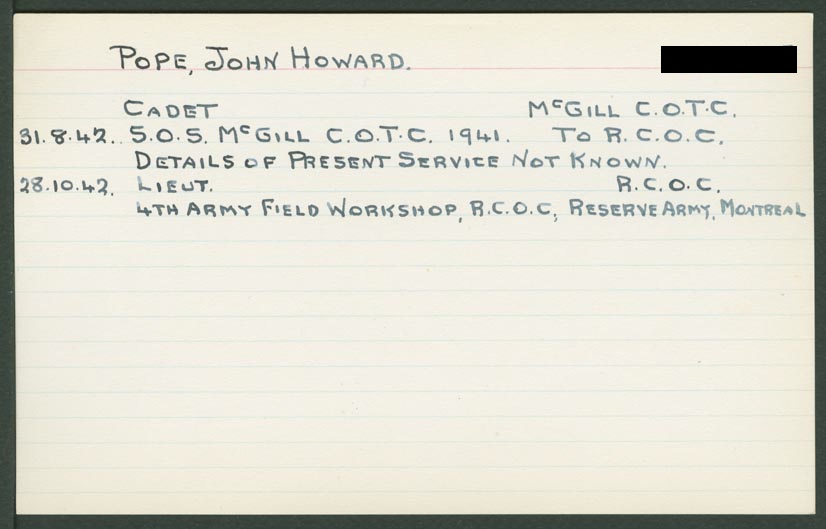 POPE, JOHN HOWARD.
CADET McGILL C.O.T.C.
31.8.42. S.O.S. McGILL C.O.T.C. 1941. TO R.C.O.C.
DETAILS OF PRESENT SERVICE NOT KNOWN.
28.10.42. LIEUT. R.C.O.C.
4TH ARMY FIELD WORKSHOP, R.C.O.C, RESERVE ARMY, MONTREAL